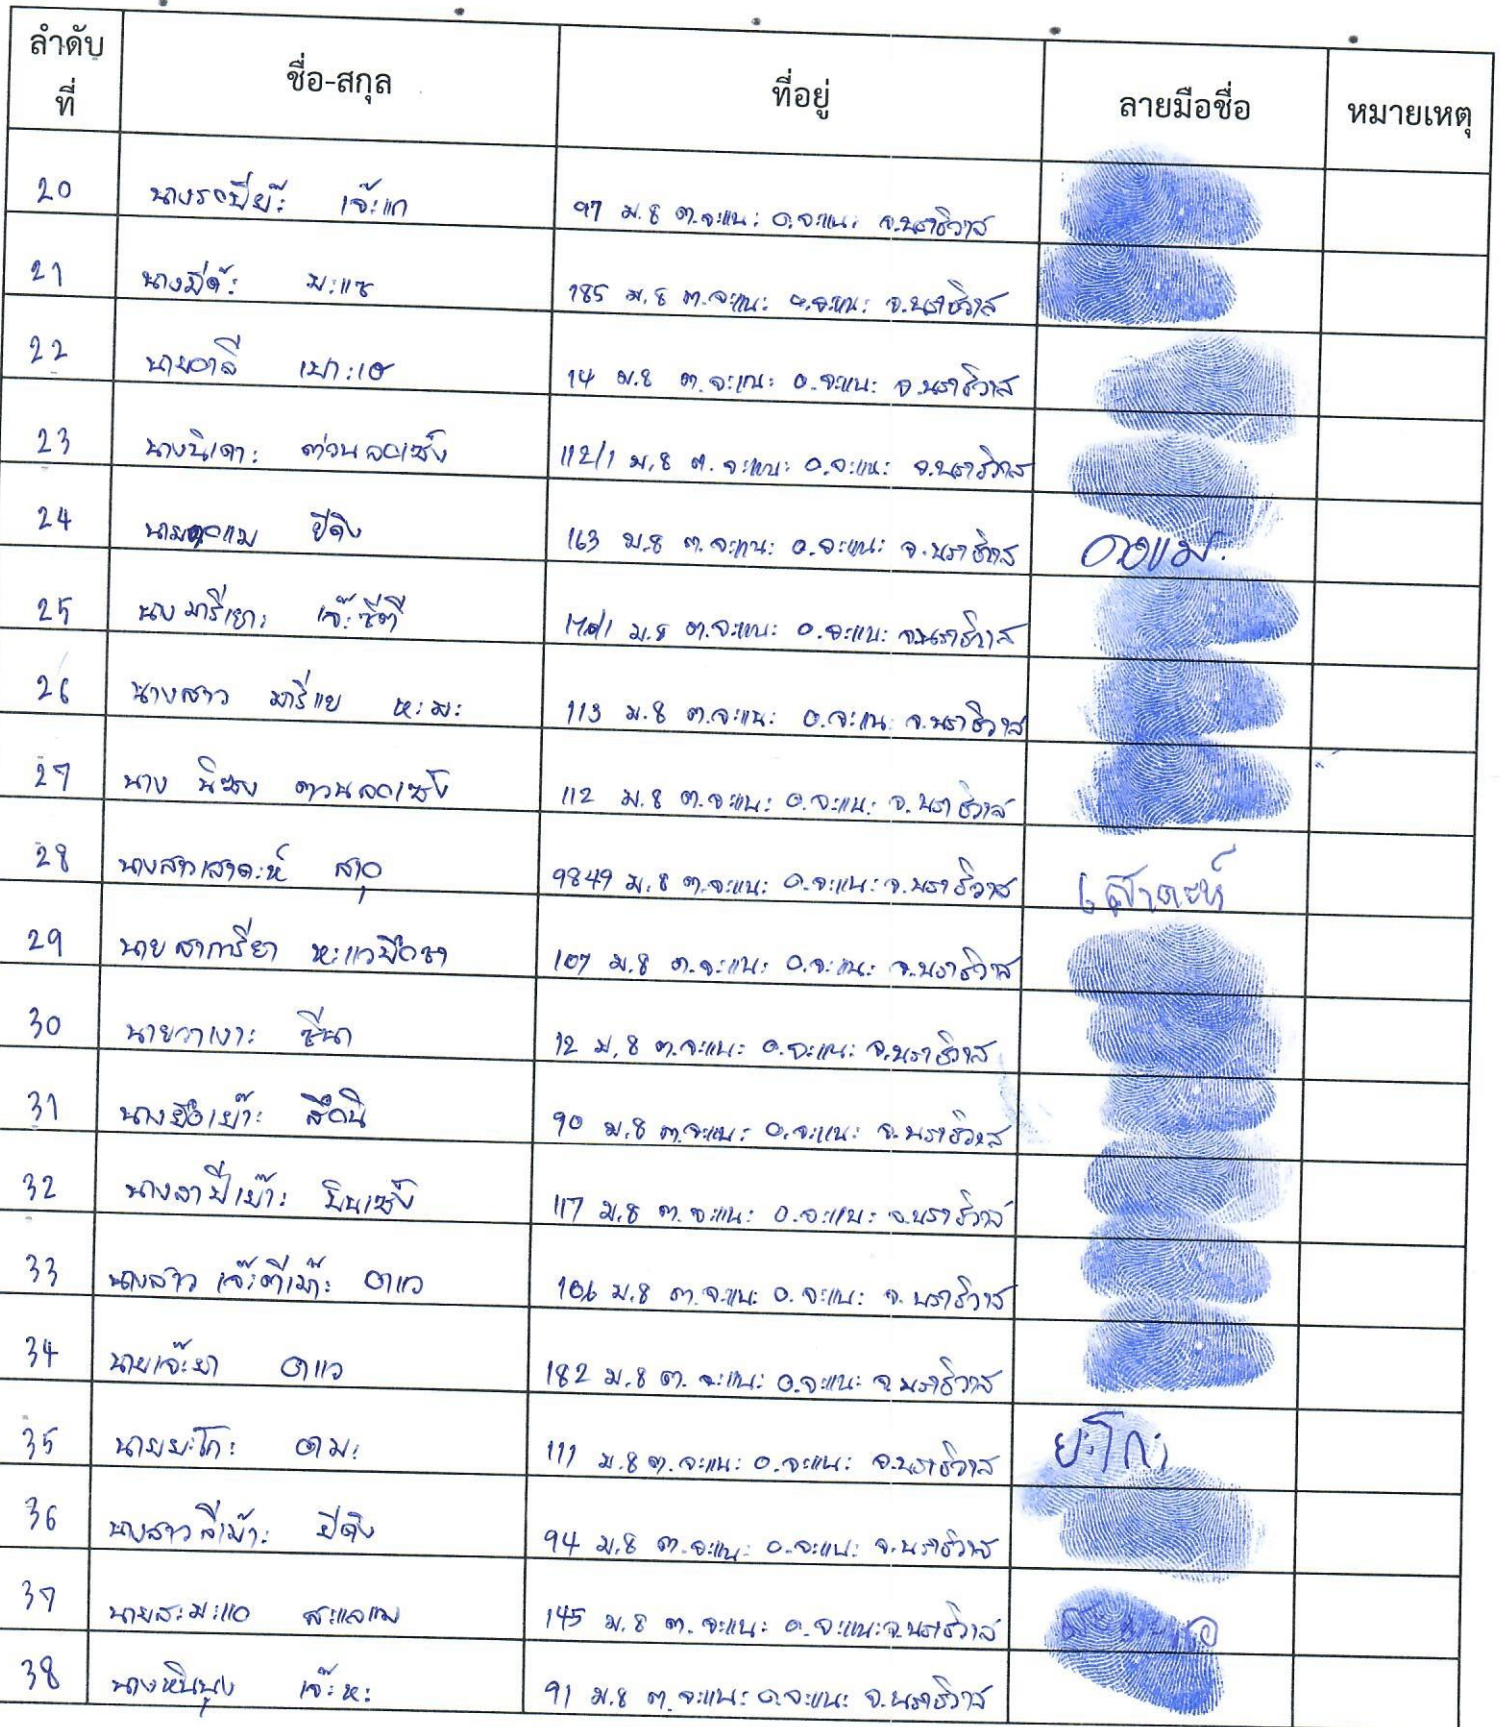 ลำดับที่ ชื่อ-สกุล ที่อยู่ ลายมือชื่อ หมายเหตุ
20 นางรอปีย๊ะ เจ๊ะแก 97 ม.8 ต.จะแนะ อ.จะแนะ จ.นราธิวาส
21 นางมีด๊ะ มะแซ 185 ม.8 ต.จะแนะ อ.จะแนะ จ.นราธิวาส
22 นายอาลี 14 ม.8 ต.จะแนะ อ.จะแนะ จ.นราธิวาส
23 นางนิเดาะ ต่วนลอเซ็ง 112/1 ม.8 ต.จะแนะ อ.จะแนะ จ.นราธิวาส
24 ยีดิง 163 ม.8 ต.จะแนะ อ.จะแนะ จ.นราธิวาส
25 นางมารีเยาะ เจ๊ะซีตี ม.8 ต.จะแนะ อ.จะแนะ จ.นราธิวาส
26 นางสาว มารีแย หะมะ 113 ม.8 ต.จะแนะ อ.จะแนะ จ.นราธิวาส
27 นาง ตวนลอเซ็ง 112 ม.8 ต.จะแนะ อ.จะแนะ จ.นราธิวาส
28 นางสาวเสาดะห์ สาอุ 9849 ม.8 ต.จะแนะ อ.จะแนะ จ.นราธิวาส เสาดะห์
29 นายสาการียา 107 ม.8 ต.จะแนะ อ.จะแนะ จ.นราธิวาส
30 นายวาเงาะ ซีนา 12 ม.8 ต.จะแนะ อ.จะแนะ จ.นราธิวาส
31 90 ม.8 ต.จะแนะ อ.จะแนะ จ.นราธิวาส
32 นางลาปีเย๊าะ บินเซ็ง 117 ม.8 ต.จะแนะ อ.จะแนะ จ.นราธิวาส
33 นางสาว เจ๊ะตีเม๊าะ อาแว 106 ม.8 ต.จะแนะ อ.จะแนะ จ.นราธิวาส
34 นายเจ๊ะยา อาแว 182 ม.8 ต.จะแนะ อ.จะแนะ จ.นราธิวาส
35 นายยะโกะ อามะ 111 ม.8 ต.จะแนะ อ.จะแนะ จ.นราธิวาส ยะโกะ
36 นางสาวลีเม๊าะ ยีดิง 94 ม.8 ต.จะแนะ อ.จะแนะ จ.นราธิวาส
37 นายสะมะแอ สะแลแม 145 ม.8 ต.จะแนะ อ.จะแนะ จ.นราธิวาส สะมะแอ
38 เจ๊ะหะ 91 ม.8 ต.จะแนะ อ.จะแนะ จ.นราธิวาส